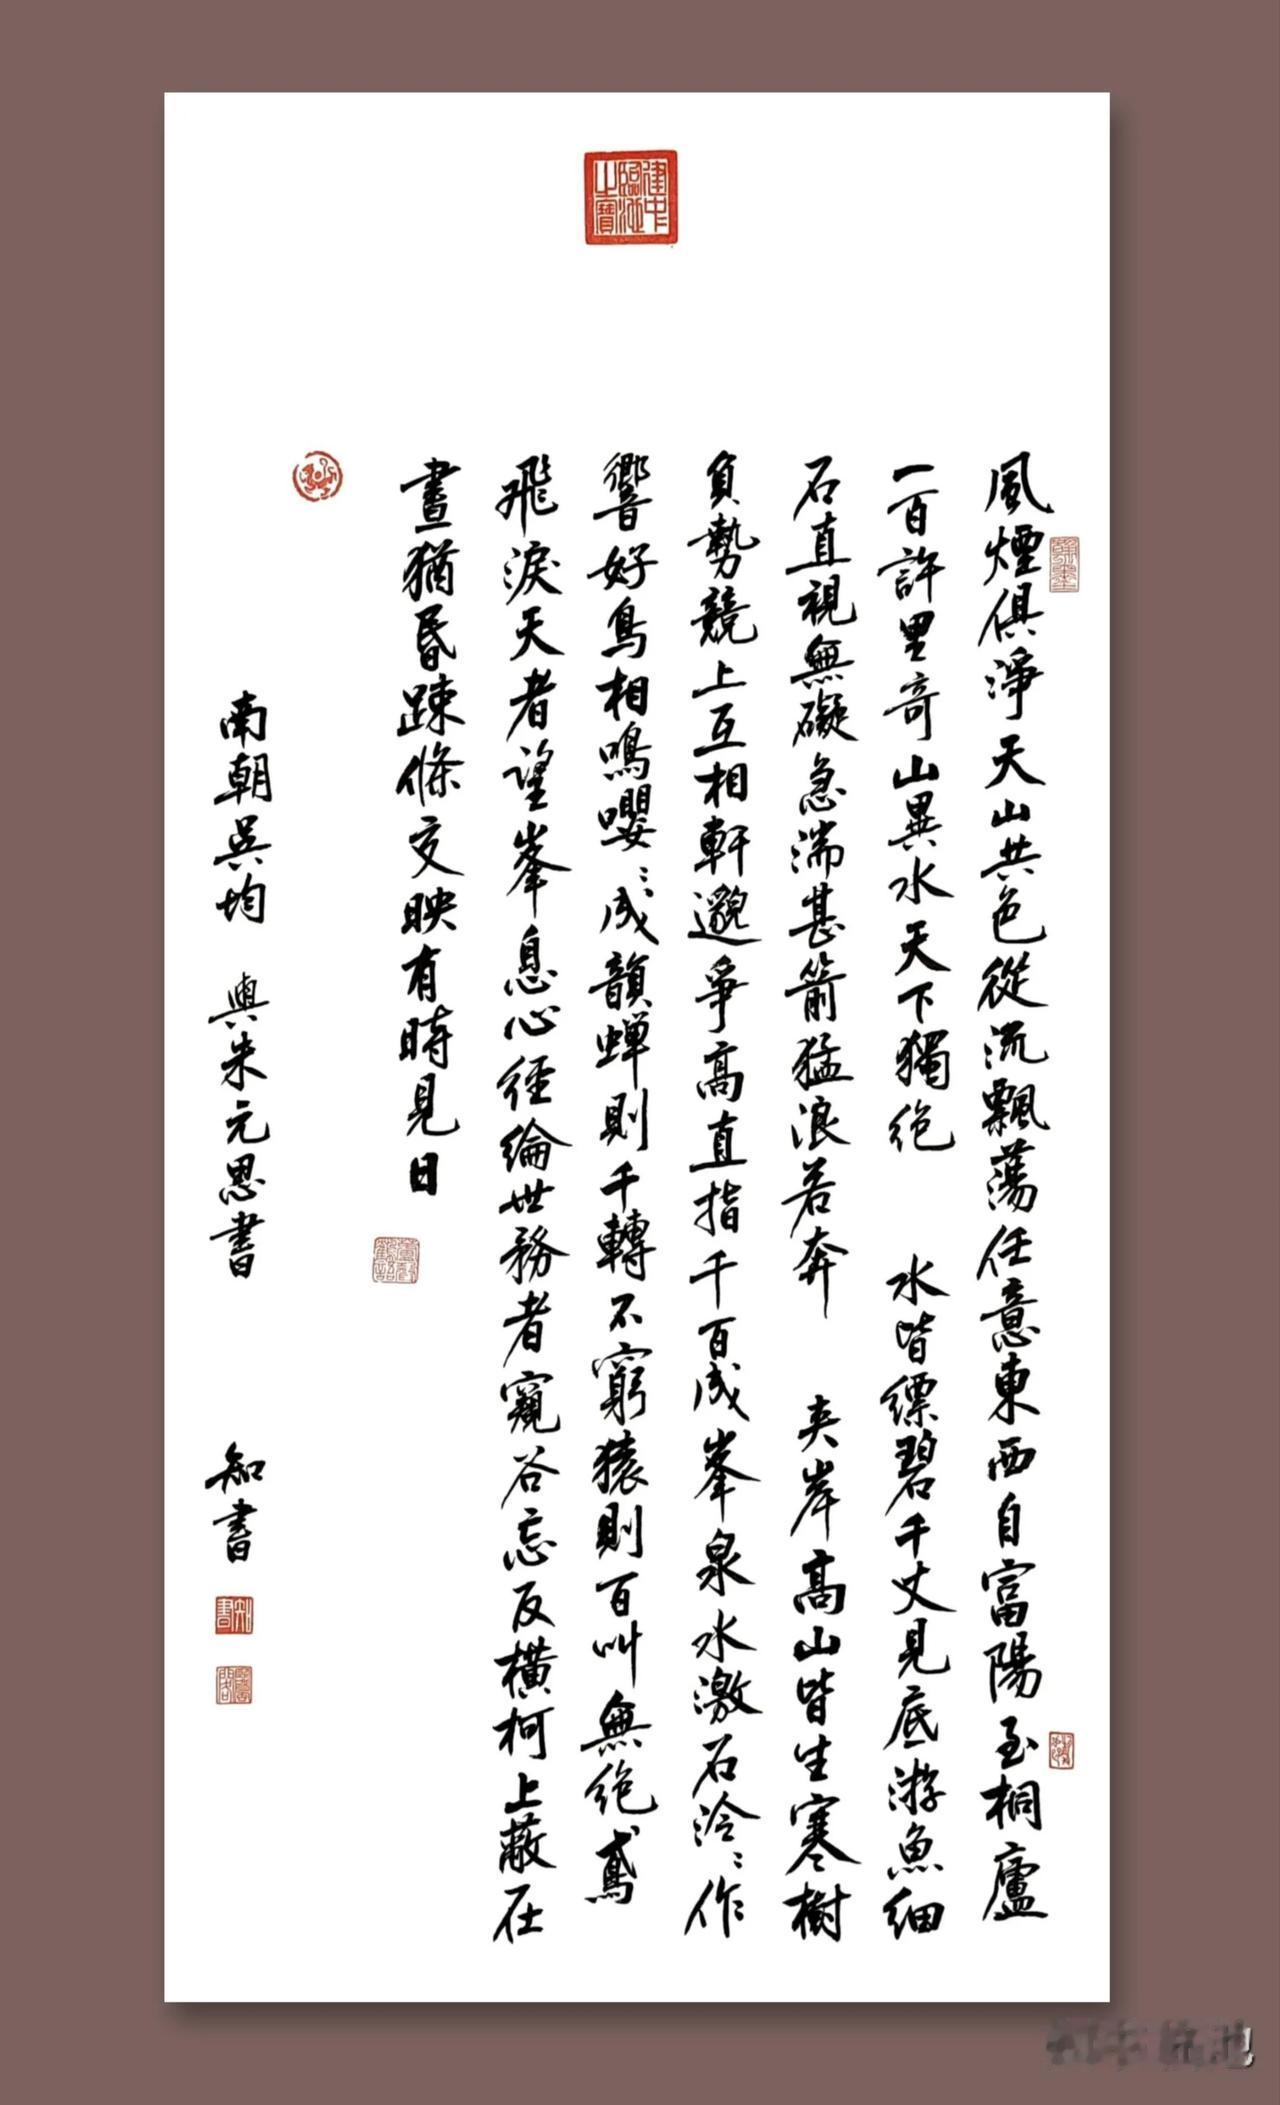 建中臨池之寶
風煙俱淨天山共色從流飄蕩任意東西自富陽至桐廬
一百許里奇山異水天下獨絕 水皆縹碧千丈見底游魚細
石直視無礙急湍甚箭猛浪若奔 夾岸高山皆生寒樹
負勢競上互相軒邈爭高直指千百成峯泉水激石泠〻作
響好鳥相鳴嚶〻成韻蟬則千轉不窮猿則百叫無絕鳶
飛淚天者望峯息心經綸世務者窺谷忘反橫柯上蔽在
晝猶昏疎條交映有時見日
南朝吳均 與朱元思書 知書
知書